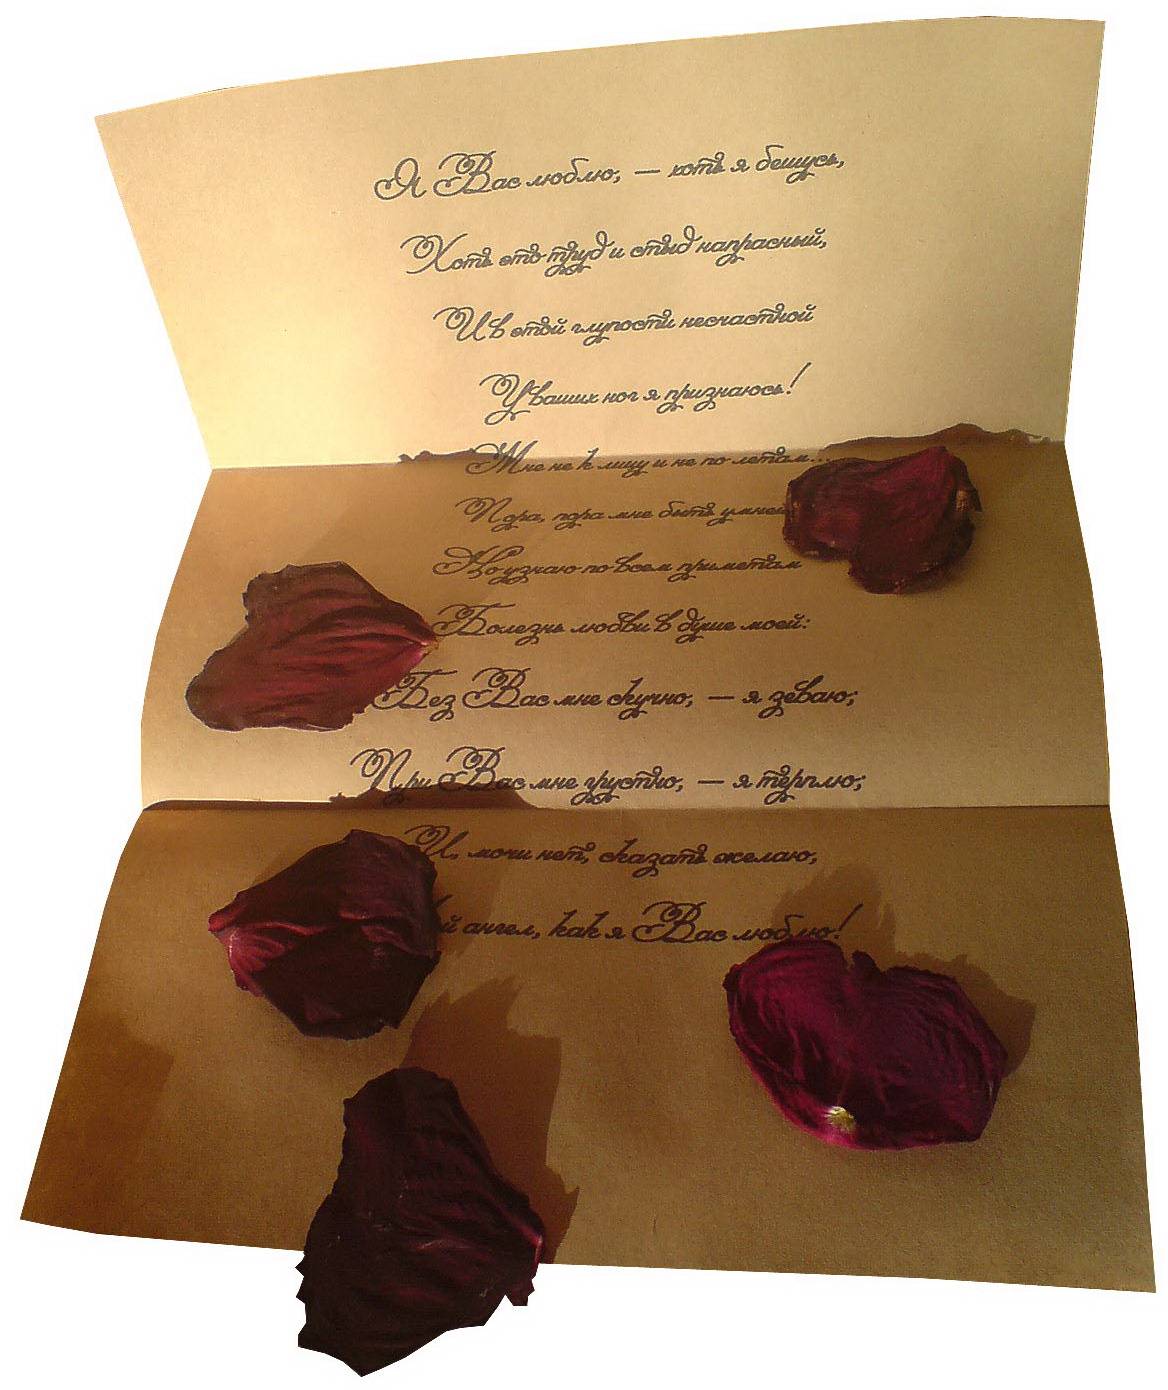 Я Вас люблю, — хоть я бешусь,
Хоть это труд и стыд напрасный,
И в этой глупости несчастной
У ваших ног я признаюсь!
Мне не к лицу и не по летам...
Пора, пора мне быть умней
Но узнаю по всем приметам
Болезнь любви в душе моей:
Без Вас мне скучно, — я зеваю;
При Вас мне грустно, — я терплю;
И, мочи нет, сказать желаю,
й ангел, как я Вас люблю!